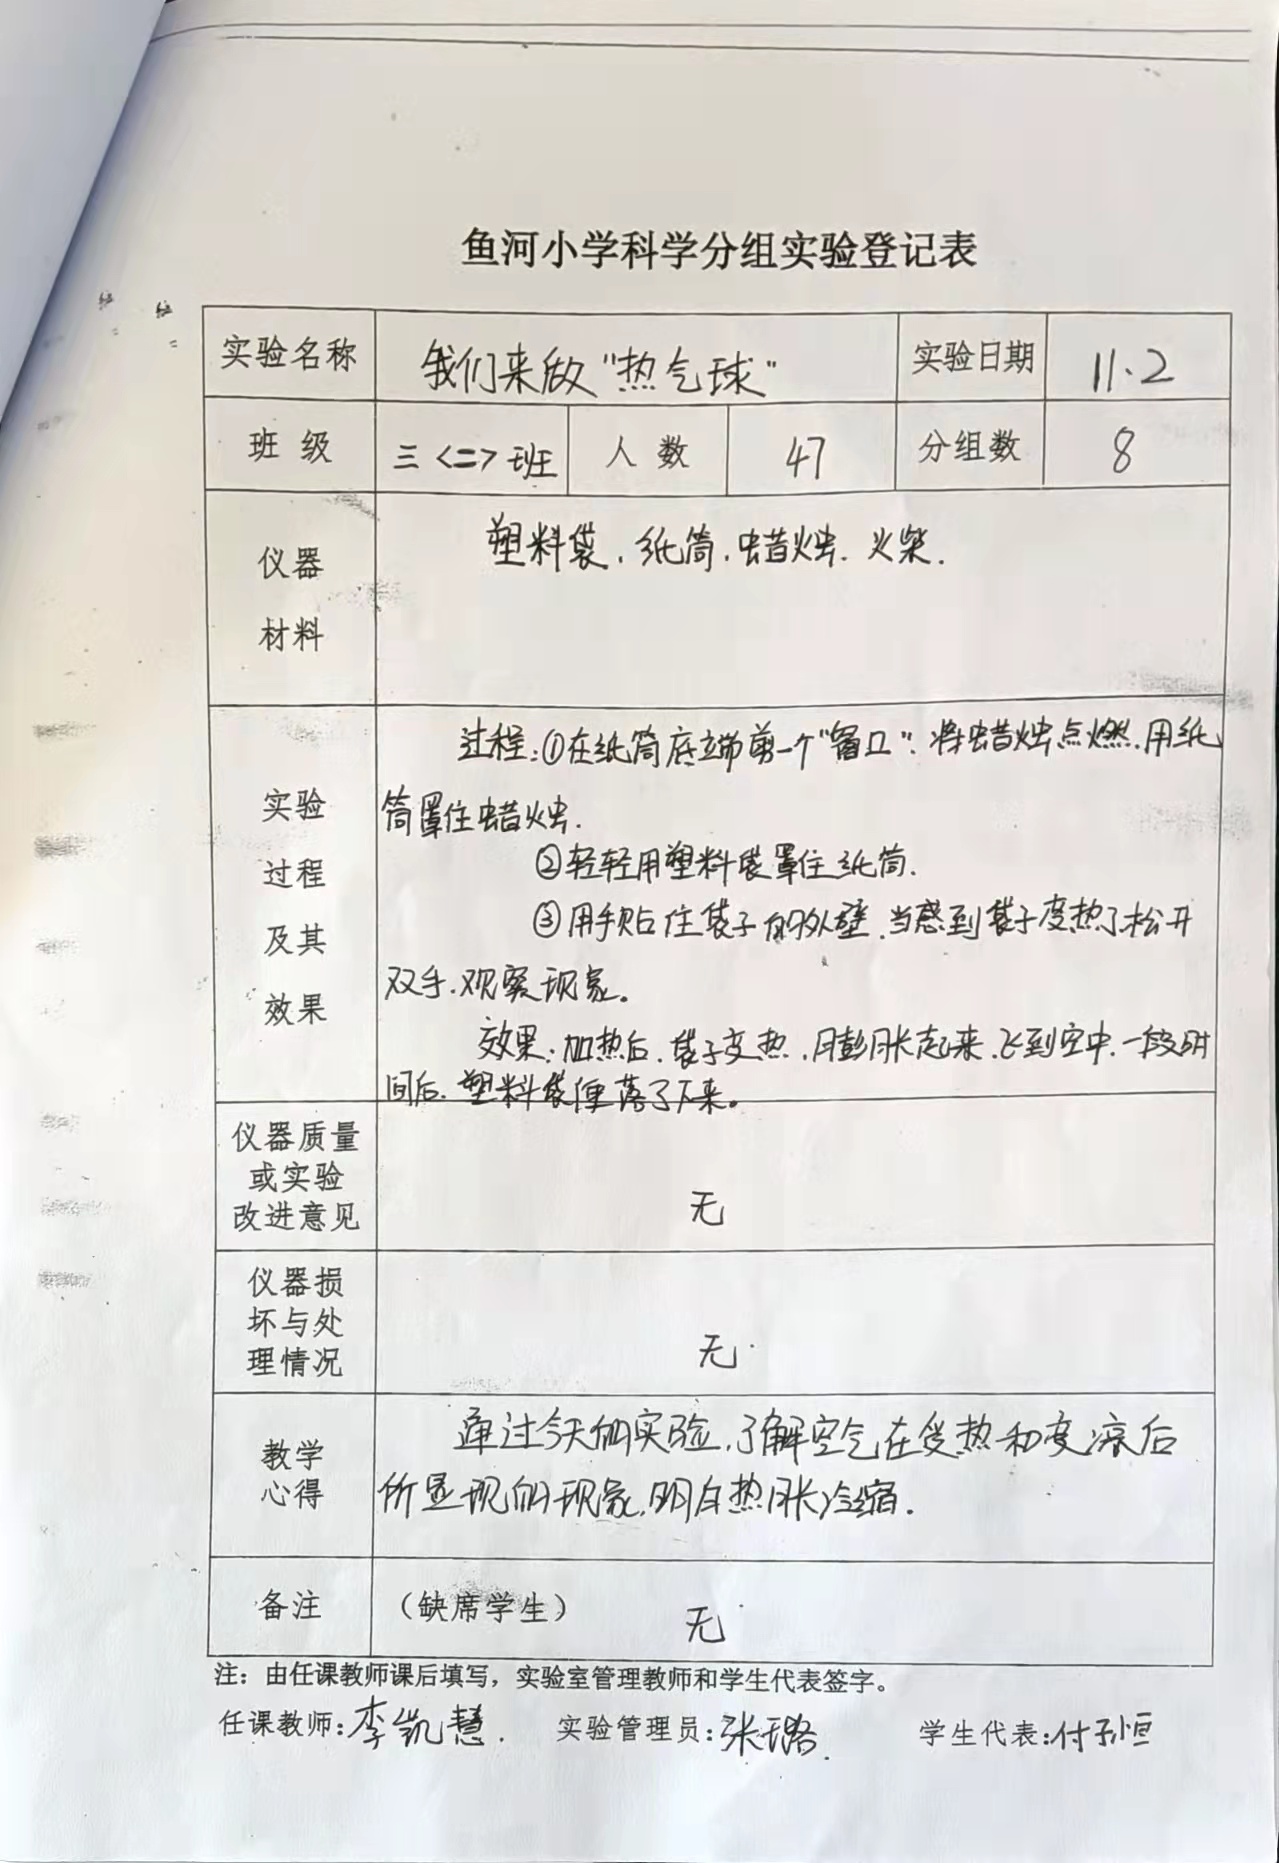 鱼河小学科学分组实验登记表
实验名称 我们来做"热气球" 实验日期 11.2
班 级 三<二>班 人 数 47 分组数 8
仪器
材料
塑料袋.纸筒.蜡烛.火柴.
实验
过程
及其
效果
过程:①在纸筒底端剪一个"窗口".将蜡烛点燃.用纸
筒罩住蜡烛.
②轻轻用塑料袋罩住纸筒.
③用手贴住袋子的外壁.当感到袋子变热了松开
双手.观察现象。
效果:加热后.袋子变热.膨胀起来.飞到空中.一段时
间后.塑料袋便落了下来。
仪器质量
或实验
改进意见
无
仪器损
坏与处
理情况
无.
教学
心得
通过今天的实验.了解空气在受热和变凉后
所显现的现象.明白热胀冷缩.
备注 (缺席学生) 无
注：由任课教师课后填写，实验室管理教师和学生代表签字。
任课教师:李凯慧. 实验管理员:张璐. 学生代表:付子恒